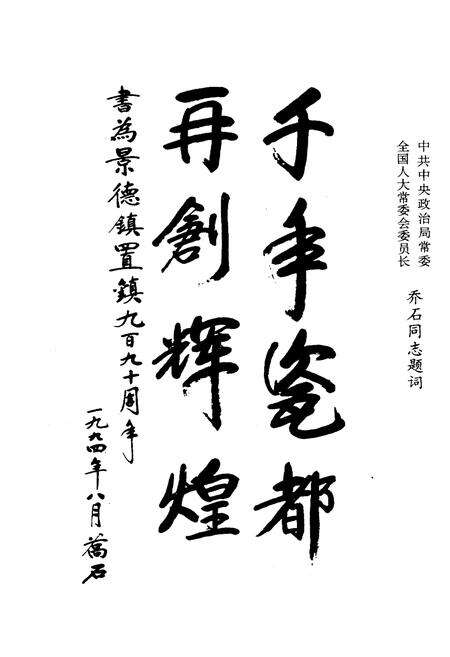 中共中央政治局常委
全国人大常委会委员长
乔石同志题词
千年瓷都
再創輝煌
書為景德鎮置鎮九百九十周年
一九九四年八月 喬石